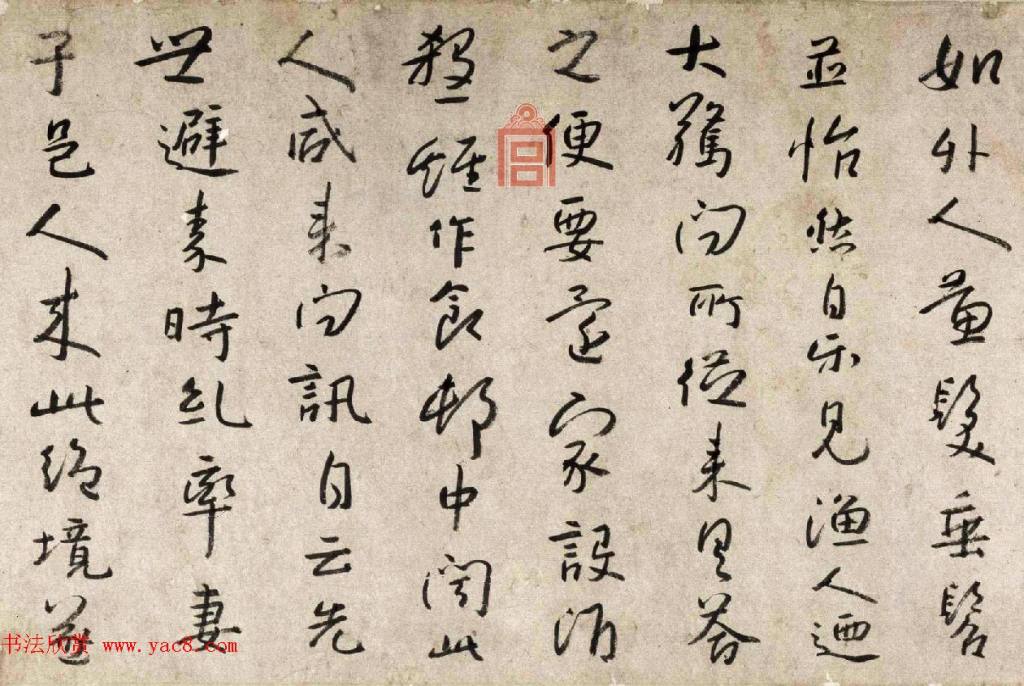 如外人黄髮垂髫
並怡然自乐見漁人迺
大驚问所從来具答
之便要還家設酒
殺雞作食邨中闻此
人咸来问訊自云先
世避秦時乱率妻
子邑人来此绝境遂
书法欣赏 www.yac8.com